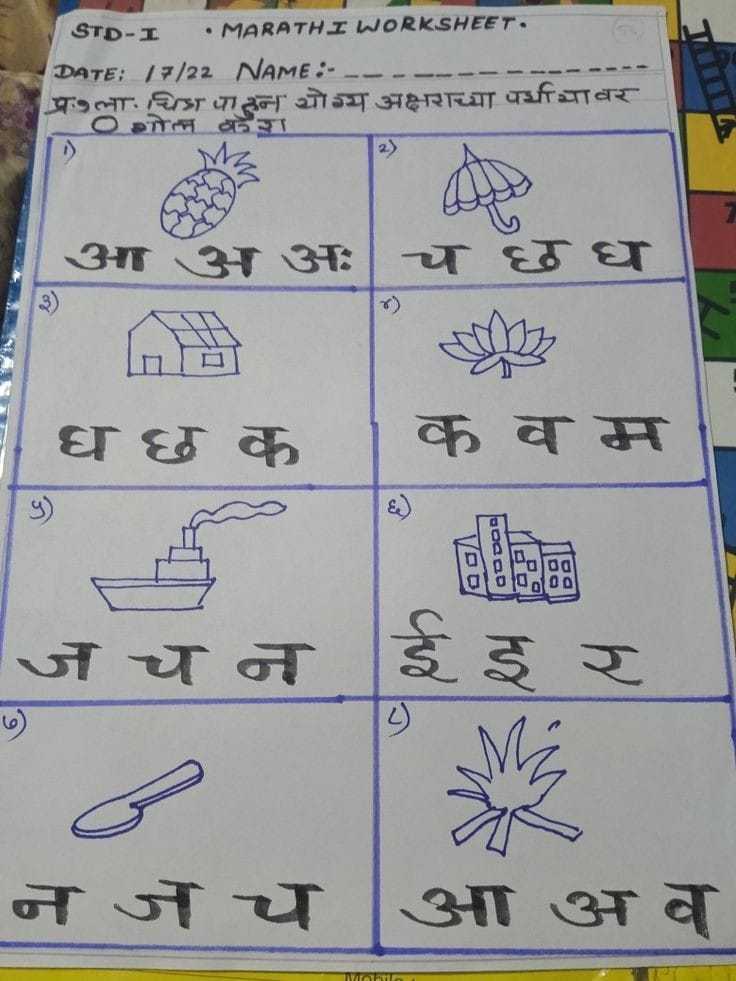 STD-I • MARATHI WORKSHEET.
DATE: 17/22 NAME:- ----------------
प्र.१ला. चित्र पाहून योग्य अक्षराच्या पर्यायावर
O गोल करा
१) २)
आ अ अः च छ घ
३) ४)
घ छ क क व म
५) ६)
ज च न ई इ र
७) ८)
न ज च आ अ व